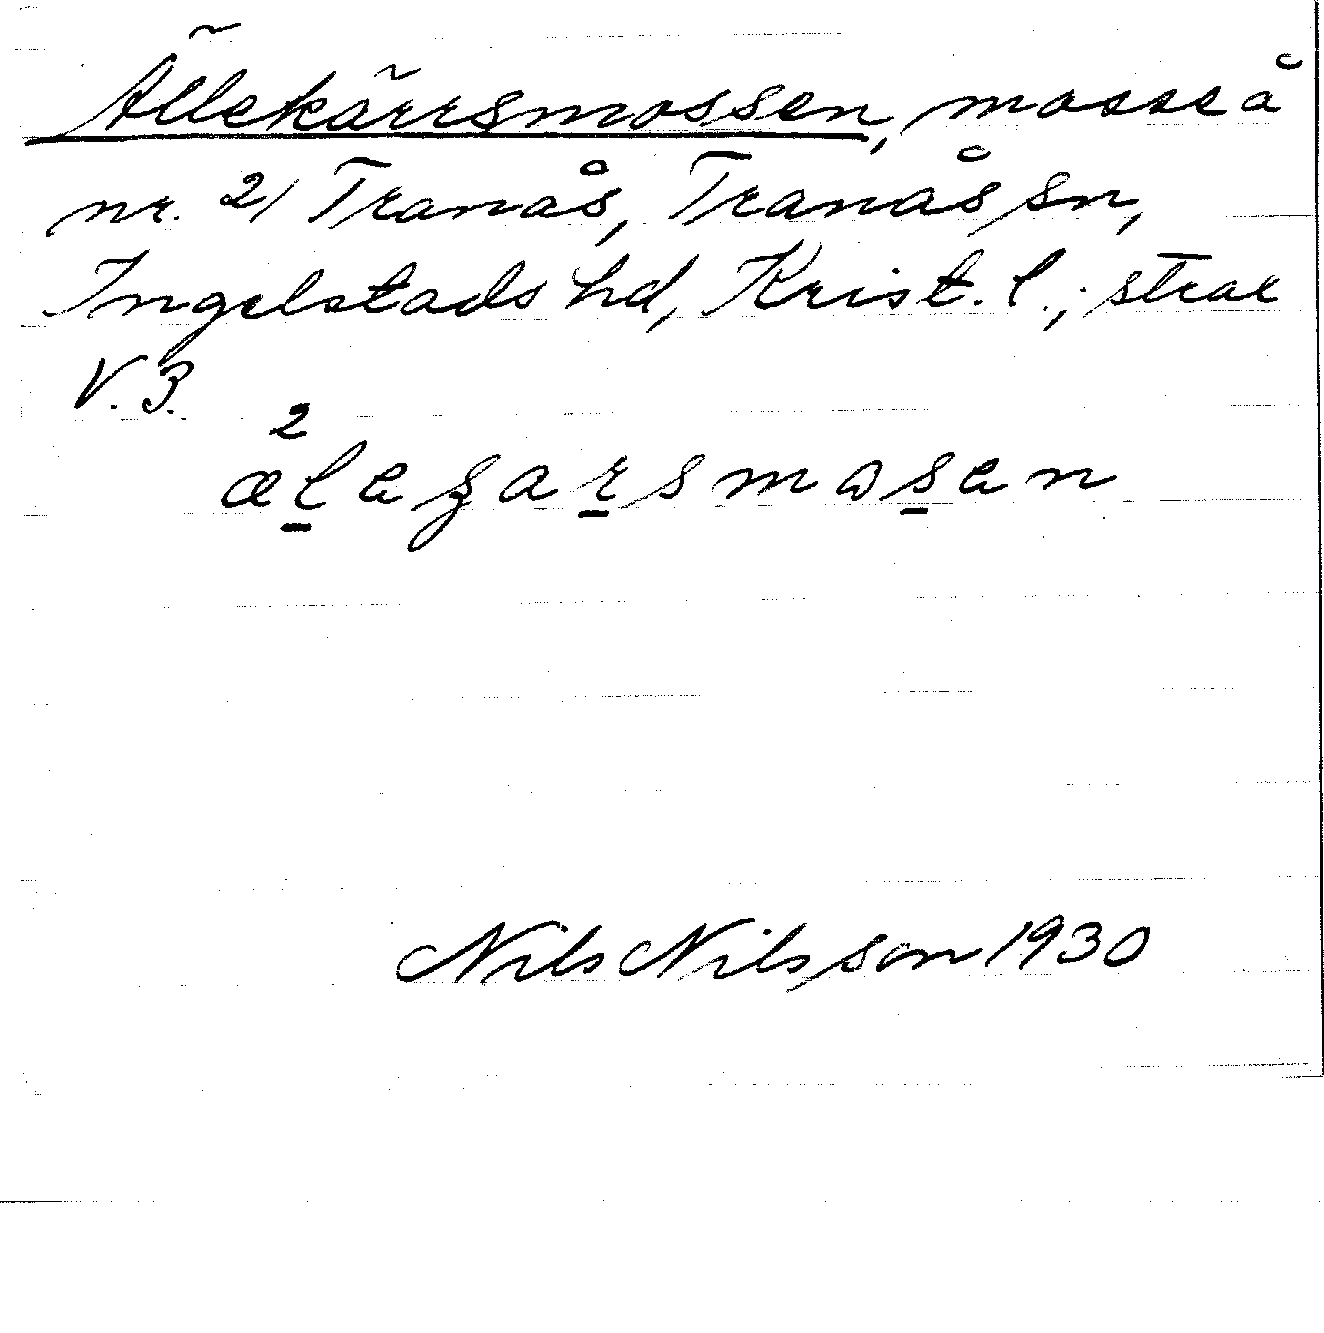 Ällekärrsmossen, mosse å
nr. 21 Tranås, Tranås sn,
Ingelstads hd, Krist. l.; strax
V. 3.
2
ælegarsmosen
Nils Nilsson 1930